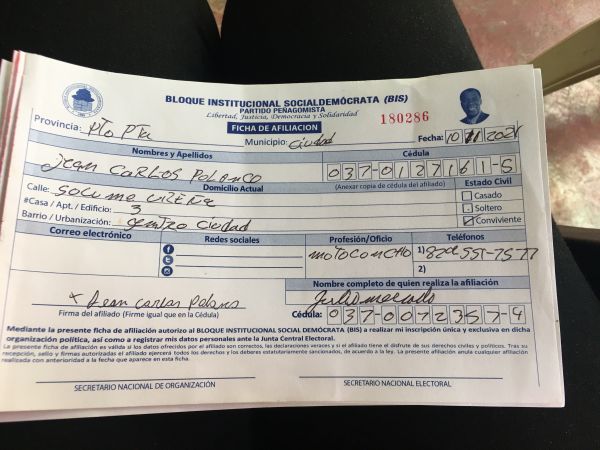 BLOQUE INSTITUCIONAL SOCIALDEMÓCRATA (BIS)
PARTIDO PEÑAGOMISTA
Libertad, Justicia, Democracia y Solidaridad
180286
FICHA DE AFILIACION
Provincia: Pto Pta Municipio: Ciudad Fecha: 10/11/2021
Nombres y Apellidos Cédula
Jean Carlos Polanco 037-0127161-5
Domicilio Actual (Anexar copia de cédula del afiliado) Estado Civil
Calle: Casado
#Casa / Apt. / Edificio: 3 Soltero
Barrio / Urbanización: Sentro Ciudad Conviviente
Correo electrónico Redes sociales Profesión/Oficio Teléfonos
motoconcho 1)
2)
Nombre completo de quien realiza la afiliación
x Jean Carlos Polanco Julio mercado
Firma del afiliado (Firme igual que en la Cédula) Cédula: 037-0072357-4
Mediante la presente ficha de afiliación autorizo al BLOQUE INSTITUCIONAL SOCIAL DEMÓCRATA (BIS) a realizar mi inscripción única y exclusiva en dicha
organización política, así como a registrar mis datos personales ante la Junta Central Electoral.
La presente ficha de afiliación es válida si los datos ofrecidos por el afiliado son correctos, las declaraciones veraces y si el afiliado tiene el disfrute de sus derechos civiles y políticos. Tras su
recepción, sello y firmas autorizadas el afiliado ejercerá todos los derechos y los deberes estatutariamente sancionados, de acuerdo a la ley. La presente afiliación anula cualquier afiliación
realizada con anterioridad a la fecha que aparece en esta ficha.
SECRETARIO NACIONAL DE ORGANIZACIÓN SECRETARIO NACIONAL ELECTORAL